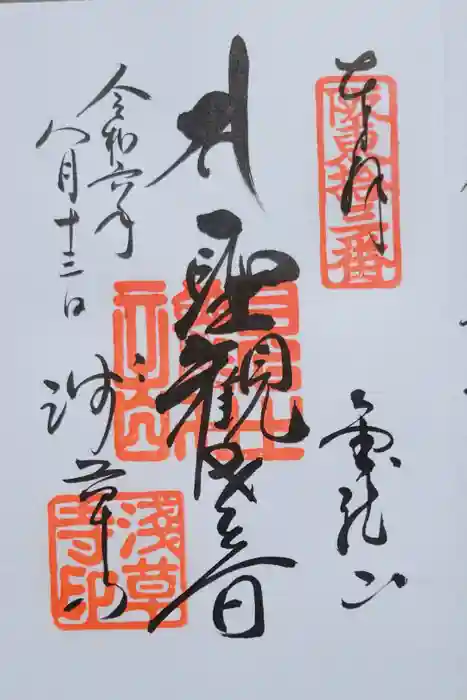 奉拝
坂東拾三番
金龍山
聖観世音
令和六年
八月十三日
浅草寺
浅草寺印